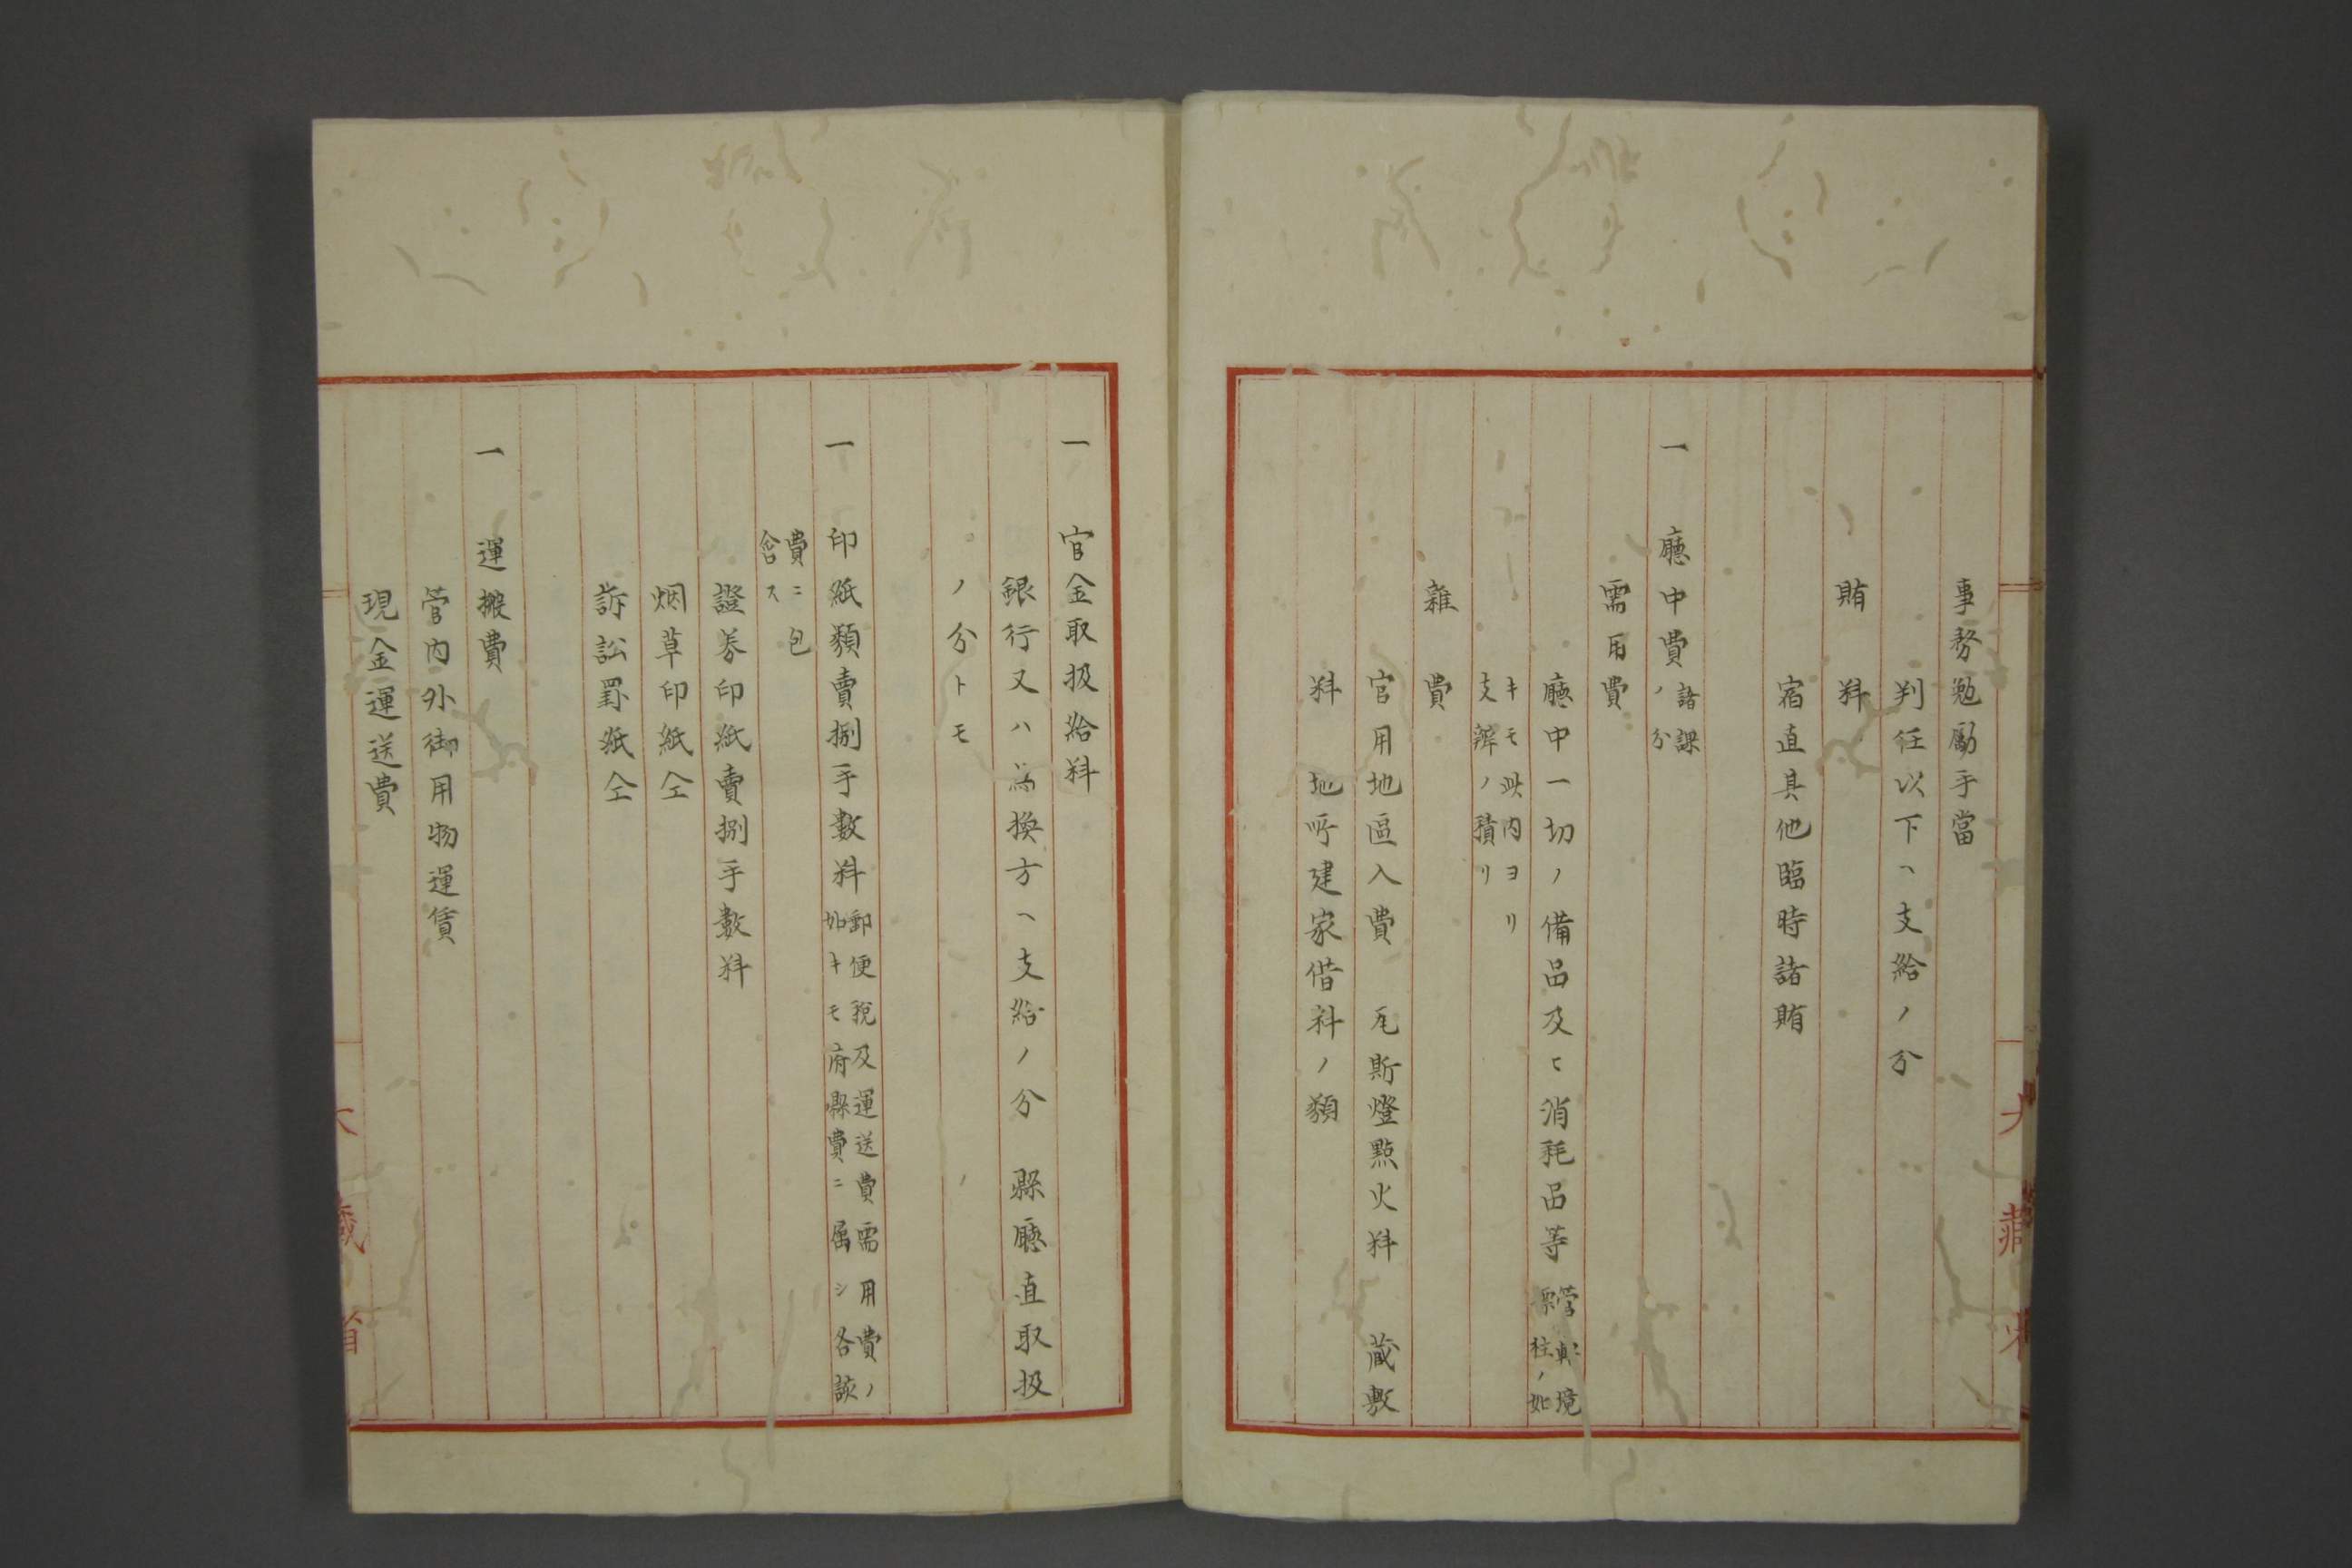 事務勉勵手當
判任以下ヘ支給ノ分
賄料
宿直其他臨時諸賄
一 廳中費諸課
ノ分
需用費
廳中一切ノ備品及ヒ消耗品等管轄境
標柱ノ如
キモ此内ヨリ
支辨ノ積リ
雜費
官用地區入費 瓦斯燈點火料 蔵敷
料 地所建家借料ノ類
一 官金取扱給料
銀行又ハ為換方ヘ支給ノ分 縣廳直取扱
ノ分トモ
一 印紙類賣捌手數料郵便税及運送費需用費ノ
如キモ府縣費ニ屬シ各該
費ニ包
含ス
證券印紙賣捌手數料
烟草印紙仝
訴訟罫紙仝
一 運搬費
管内外御用物運賃
現金運送費
大藏省